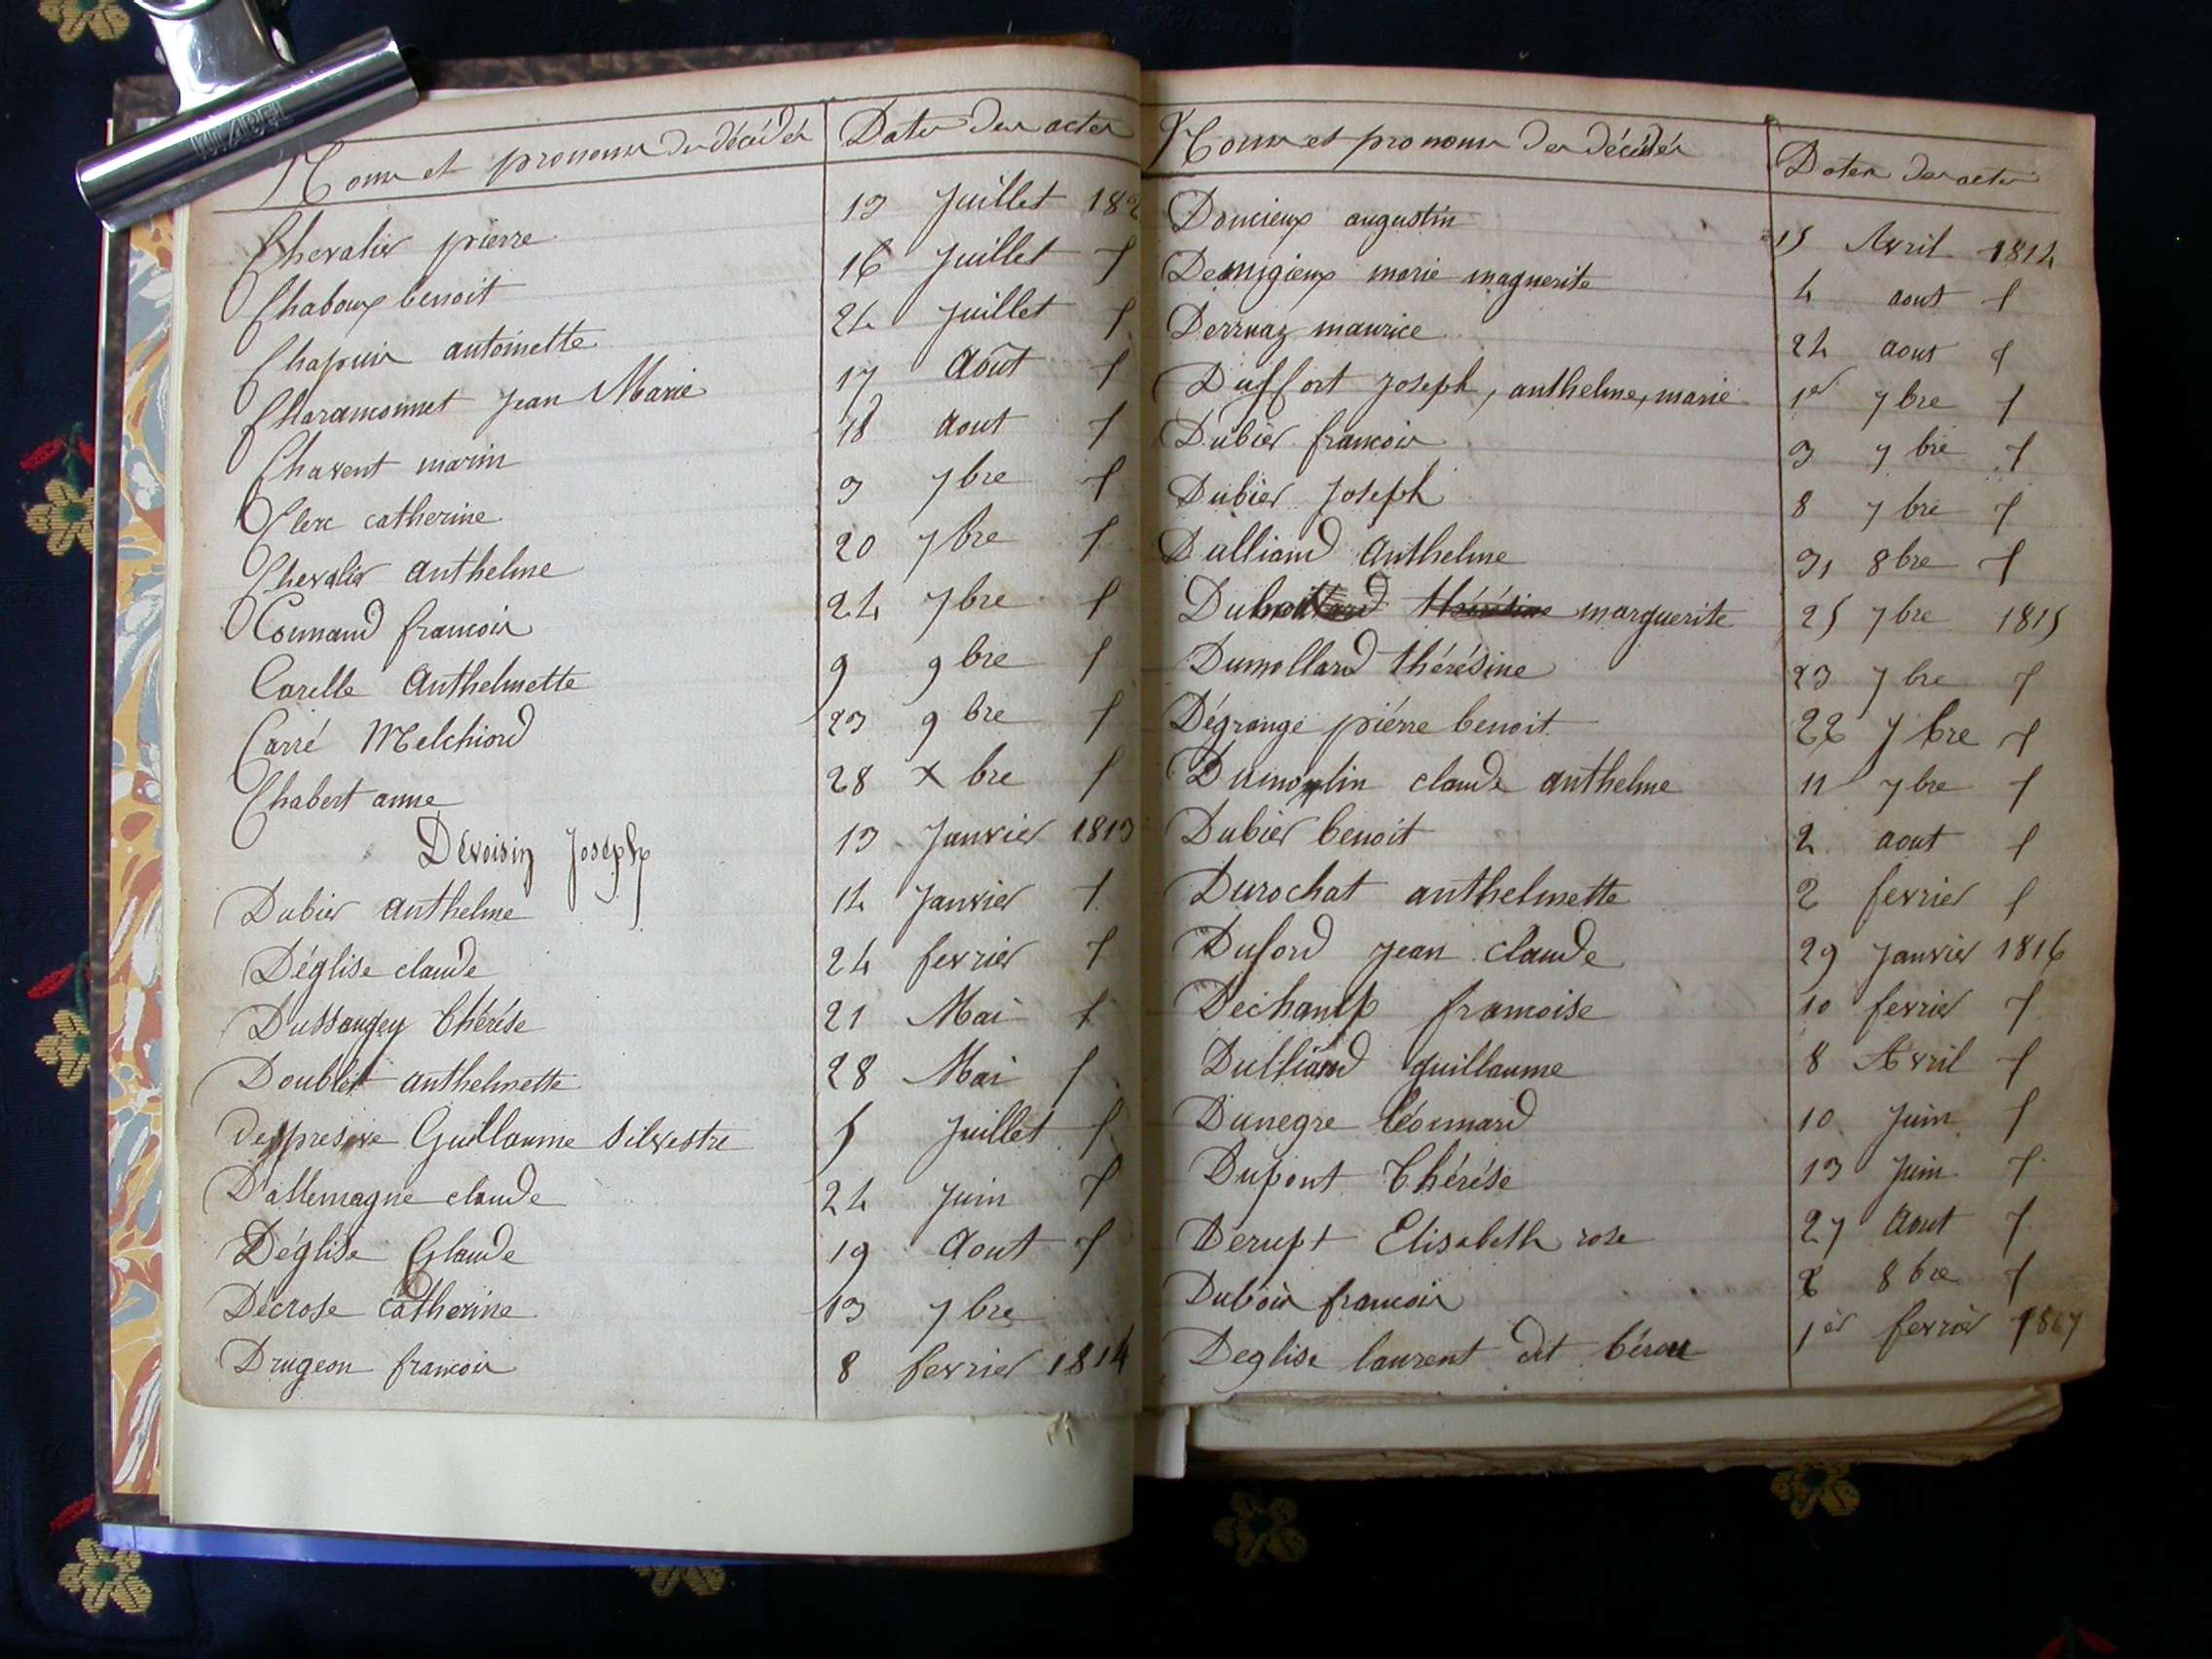 Noms et prenoms des décédés Dates des actes
Chevalier pierre 13 Juillet 182
Chaboux benoit 16 Juillet f
Chapuis antoinette 24 Juillet f
Charamonnet Jean Marie 17 Août f
Chavent marin 18 aout f
Clerc catherine 3 7bre f
Chevalier anthelme 20 7bre f
Connand francois 24 7bre f
Carelle Anthelmette 9 9bre f
Carré Melchiord 23 9bre f
Chabert anne 28 Xbre f
Devoisin Joseph 13 Janvier 1813
Dubier anthelme 14 Janvier f
Déglise claude 24 fevrier f
Dussaugey thérése 21 Mai f
Doublet anthelmette 28 Mai f
Guillaume Silvestre 5 Juillet f
Dallemagne claude 24 Juin f
Déglise Claude 19 Aout f
Decrose catherine 13 7bre
Drugeon francois 8 fevrier 1814
Noms et prenoms des décédés Dates des actes
Doucieux augustin 15 Avril 1814
Demigieux marie maguerite 4 aout f
Derruaz maurice 24 aout f
Duffort Joseph, anthelme, marie 1er 7bre f
Dubier francois 3 7bre f
Dubier Joseph 8 7bre f
Dulliand Anthelme 31 8bre f
marguerite 25 7bre 1815
Dumollard thérésine 23 7bre f
Dégrange piérre benoit 22 7bre f
Dumoulin claude anthelme 11 7bre f
Dubier benoit 2 aout f
Durochat anthelmette 2 fevrier f
Duford Jean claude 29 Janvier 1816
Dechamp francoise 10 fevrier f
Dulliand guillaume 8 Avril f
Dunegre Léonnard 10 Juin f
Dupont thérése 13 Juin f
Derupt Elisabeth rose 27 Aout f
Dubois francois 8bre f
Deglise laurent dit 1er fevrier 1817